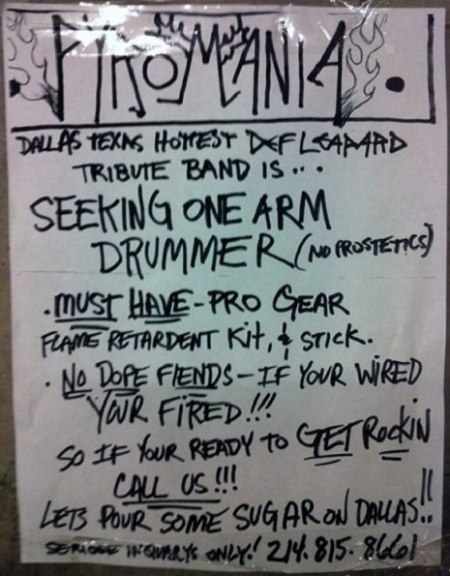 PYROMANIA
DALLAS TEXAS HOTTEST DEF LEPPARD
TRIBUTE BAND IS...
SEEKING ONE ARM
DRUMMER (NO PROSTETICS)
. MUST HAVE - PRO GEAR
FLAME RETARDENT KIT, & STICK.
. NO DOPE FIENDS - IF YOUR WIRED
YOUR FIRED!!!
SO IF YOUR READY TO GET ROCKIN
CALL US!!!
LETS POUR SOME SUGAR ON DALLAS!!
SERIOUS INQUARYS ONLY! 214.815.8661